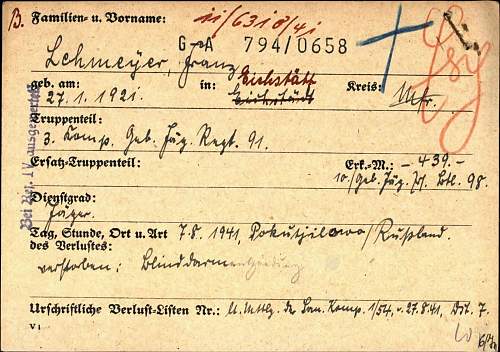 B. Familien- u. Vorname: ii/6318/41
G-A 794/0658
Lehmeyer, Franz
Eichstätt
geb. am: in: Eichstädt Kreis:
27.1.1921. Mfr.
Truppenteil:
3. Komp. Geb. Jäg. Regt. 91.
Ersatz-Truppenteil: Erk.-M.: -439.-
10./Geb. Jäg. Btl. 98.
Dienstgrad:
Jäger.
Tag, Stunde, Ort u. Art 7.8.1941 Pokutjilowo/Rußland.
des Verlustes:
verstorben: Blinddarmentzündung
Urschriftliche Verlust-Listen Nr.: lt. Mttlg. der San. Komp. 1/54, v. 27.8.41,
V 1
Bei Ref. IV ausgewertet